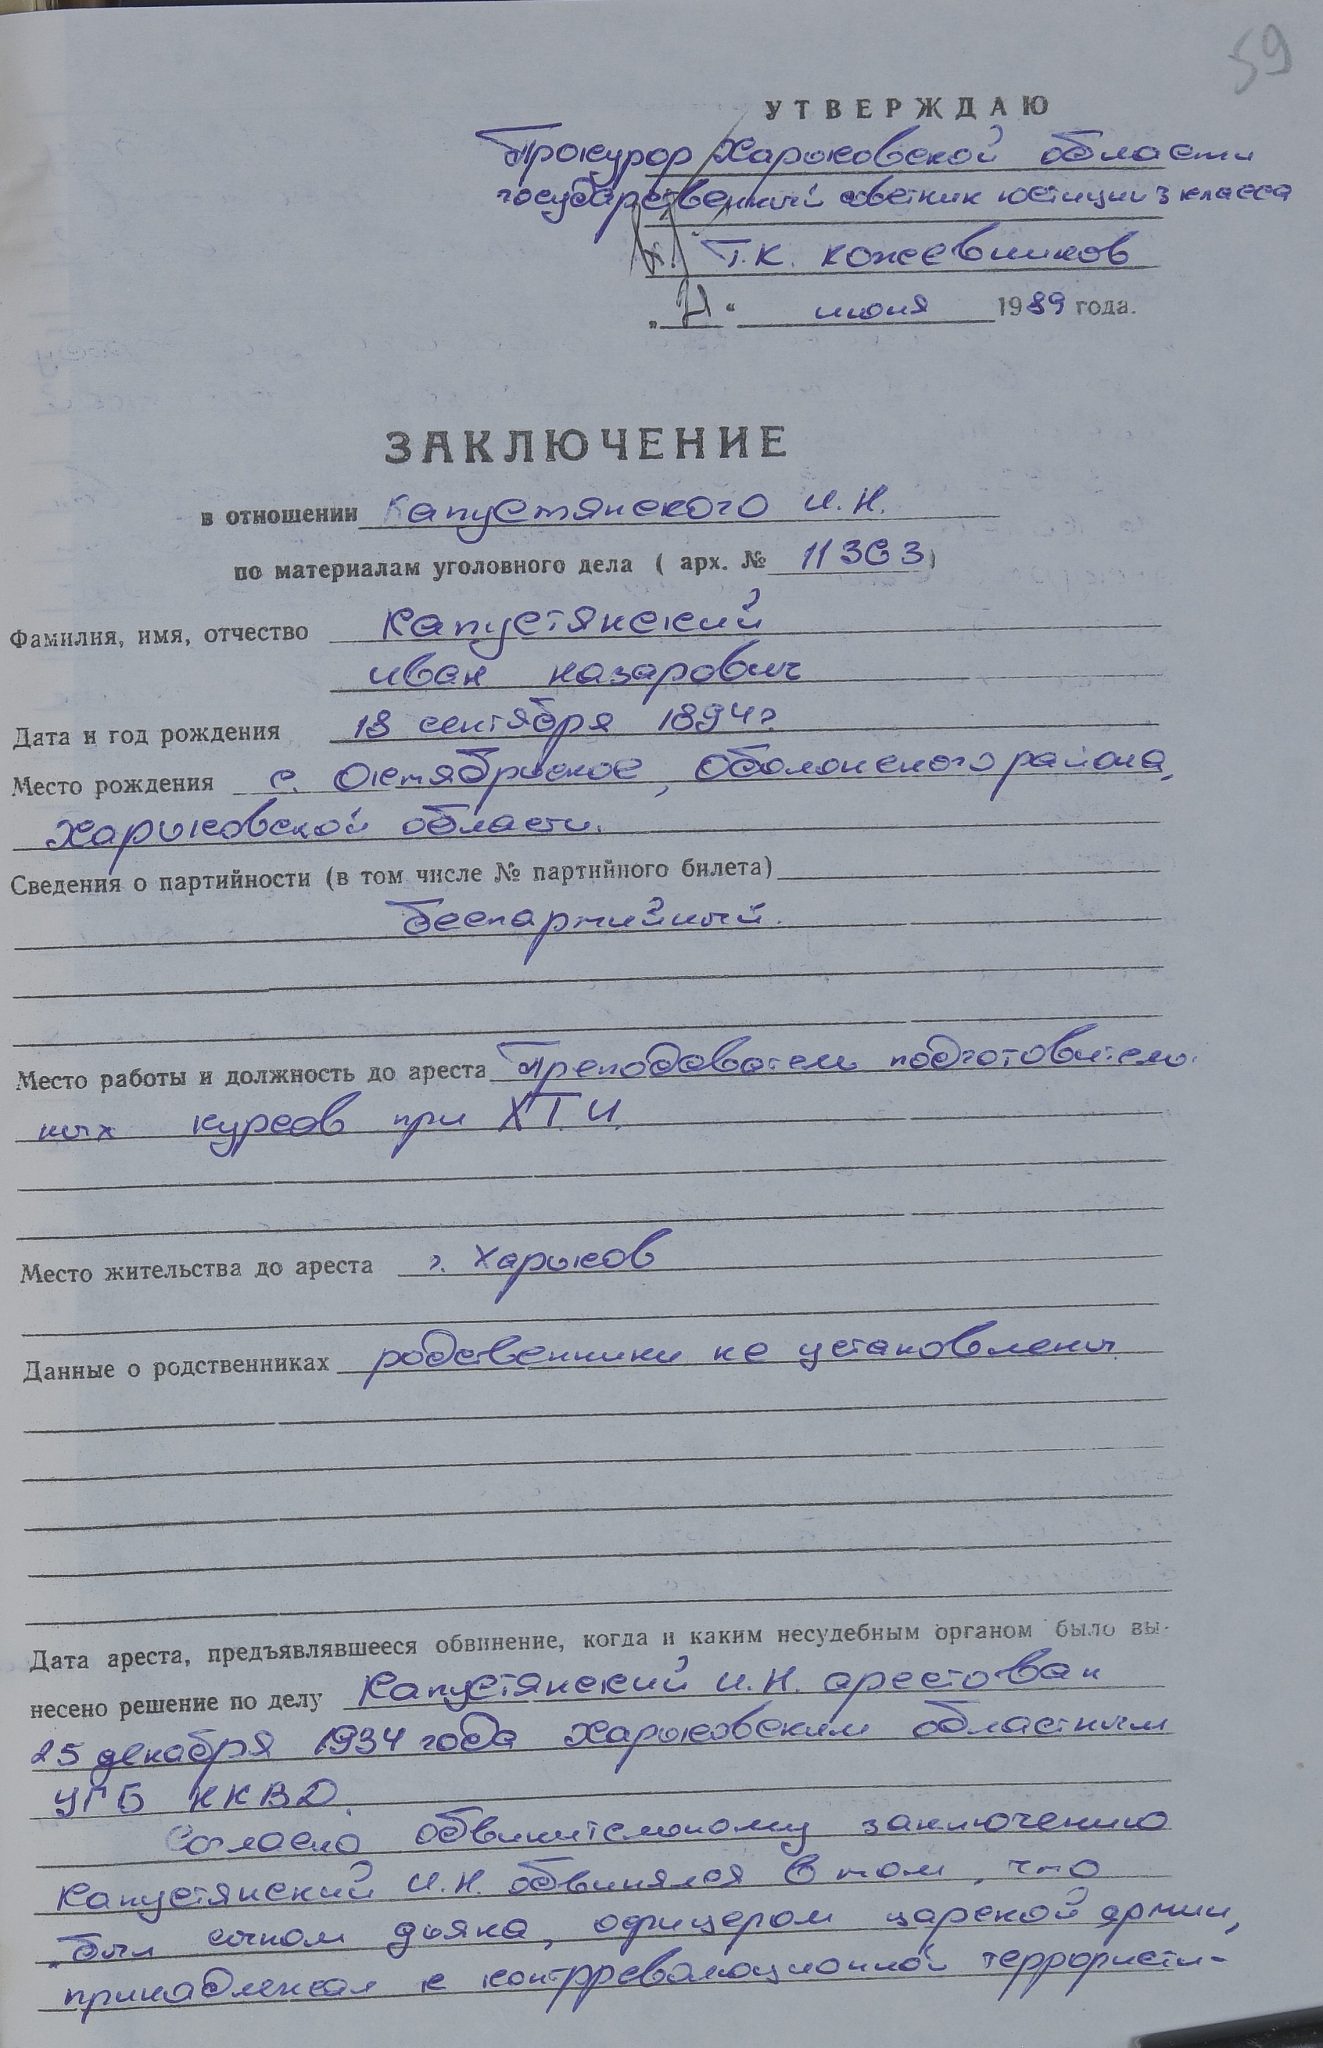 59
УТВЕРЖДАЮ
Прокурор Харьковской области
государственный советник юстиции 3 класса
Г.К. Кожевников
„21“ июня 1989 года.
ЗАКЛЮЧЕНИЕ
в отношении Капустянского И.Н.
по материалам уголовного дела ( арх. № 11363)
Фамилия, имя, отчество Капустянский
Иван Назарович
Дата и год рождения 18 сентября 1894г
Место рождения с. Октябрьское, Оболонского района,
Харьковской области.
Сведения о партийности (в том числе № партийного билета)
беспартийный.
Место работы и должность до ареста Преподаватель подготовитель-
ных курсов при ХТИ.
Место жительства до ареста г. Харьков
Данные о родственниках родственники не установлены.
Дата ареста, предъявлявшееся обвинение, когда и каким несудебным органом было вы-
несено решение по делу Капустянский И.Н. арестован
25 декабря 1934 года Харьковским областным
УГБ НКВД.
Согласно обвинительному заключению
Капустянский И.Н. обвинялся в том, что
„был сыном дьяка, офицером царской армии,
принадлежал к контрреволюционной террористи-